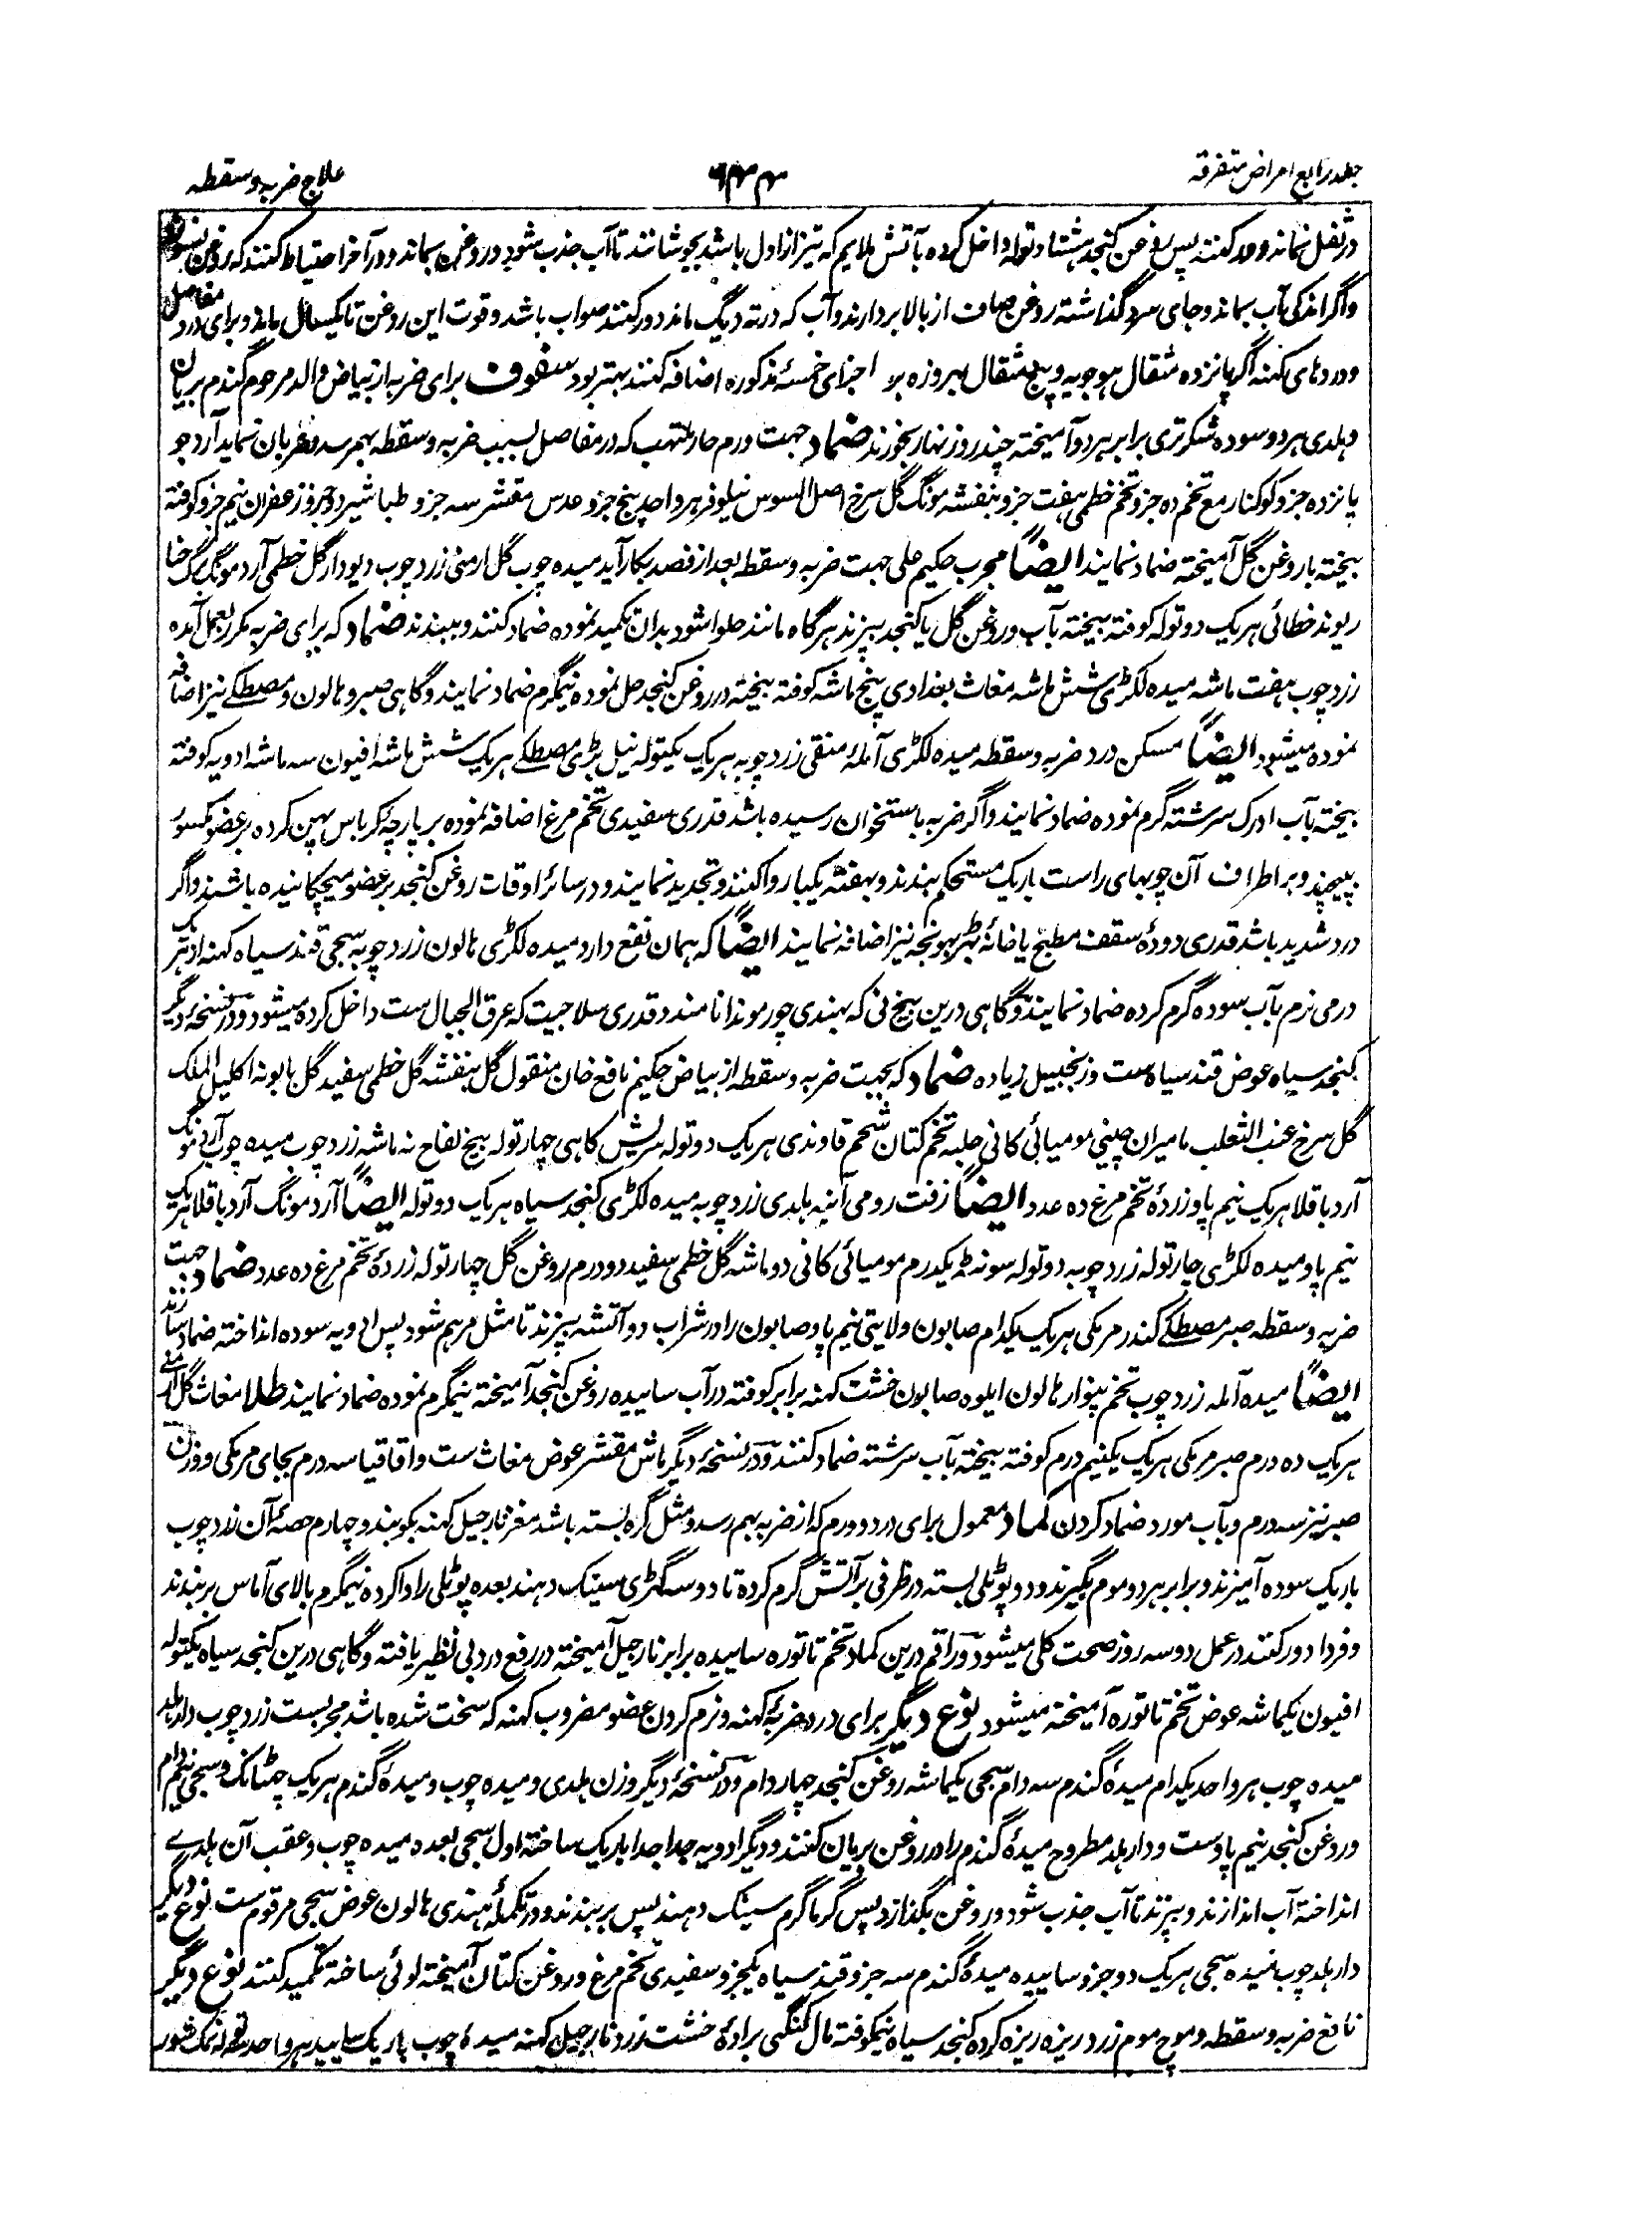 جلد رابع امراض متفرقه
۶۴۴
علاج ضربه و سقطه
در ثفل نماند و دور کنند پس روغن کنجد هشتاد توله داخل کرده بآتش ملایم که تیز از اول باشد بجوشانند تا آب جذب شود و روغن بماند و در آخر احتیاط کنند که روغن نسوزد
و اگر اندکی آب بماند و جای سرد گذاشته روغن صاف از بالا بردارند و آب که در ته دیگ ماند دور کنند صواب باشد و قوت این روغن تا یکسال ماند و برای درد مفاصل
و دردهای کهنه اگر پانزده مثقال هوجوبه و پنج مثقال بهروزه بر اجزای خمسهٔ مذکوره اضافه کنند بهتر بود سفوف برای ضربه از بیاض والد مرحوم گندم بریان
و هلدی هر دو سوده شکر تری برابر هر دو آمیخته چند روز نهار بخورند ضماد جهت ورم حار ملتهب که در مفاصل بسبب ضربه و سقطه بهمرسد و ضربان نماید آرد جو
پانزده جزو کوکنار مع تخم ده جزو تخم خطمی هفت جزو بنفشه مونگ گل سرخ اصل السوس نیلوفر هر واحد پنج جزو عدس مقشر سه جزو طباشیر دو جزو زعفران نیم جزو کوفته
بیخته با روغن گل آمیخته ضماد نمایند ایضاً مجرب حکیم علی جهت ضربه و سقطه بعد از فصد بکار آید میده چوب گل ارمنی زرد چوب دیودار گل خطمی آرد مونگ برگ حنا
ریوند خطائی هر یک دو توله کوفته بیخته بآب و روغن گل یا کنجد بپزند هرگاه مانند حلوا شود بدان تکمید نموده ضماد کنند و ببندند ضماد که برای ضربه مکرر بعمل آمده
زرد چوب هفت ماشه میده لکڑی شش ماشه مغاث بغدادی پنج ماشه کوفته بیخته در روغن کنجد حل نموده نیمگرم ضماد نمایند و گاهی صبر و هالون و مصطکے نیز اضافه
نموده میشود ایضاً مسکن درد ضربه و سقطه میده لکڑی آمله منقی زرد چوبه هر یک یکتوله نیل بڑی مصطکے هر یک شش ماشه افیون سه ماشه ادویه کوفته
بیخته بآب ادرک سرشته گرم نموده ضماد نمایند و اگر ضربه باستخوان رسیده باشد قدری سفیدی تخم مرغ اضافه نموده بر پارچه کرباس پهن کرده بر عضو مکسور
بپیچند و بر اطراف آن چوبهای راست باریک مستحکم ببندند و بهفته یکبار واکنند و تجدید نمایند و در سائر اوقات روغن کنجد بر عضو میچکانیده باشند و اگر
درد شدید باشد قدری دودهٔ سقف مطبخ یا خانهٔ بهڑبهونجه نیز اضافه نمایند ایضاً که همان نفع دارد میده لکڑی هالون زرد چوبه سجی قند سیاه کهنه از هر یک
درمی نرم بآب سوده گرم کرده ضماد نمایند و گاهی درین بیخ نی که بهندی چور موندا نامند و قدری سلاجیت که عرق الجبال ست داخل کرده میشود و در نسخهٔ دیگر
کنجد سیاه عوض قند سیاه ست و زنجبیل زیاده ضماد که بجهت ضربه و سقطه از بیاض حکیم نافع خان منقول گل بنفشه گل خطمی سفید گل بابونه اکلیل الملک
گل سرخ عنب الثعلب مامیران چینی مومیائی کانی حلبه تخم کتان شحم قاوندی هر یک دو توله سریش کاهی چهار توله بیخ لفاح نه ماشه زرد چوب میده چوب آرد مونگ
آرد باقلا هر یک نیم پاو زردهٔ تخم مرغ ده عدد ایضاً زفت رومی آنبه هلدی زرد چوبه میده لکڑی کنجد سیاه هر یک دو توله ایضاً آرد مونگ آرد باقلا هر یک
نیم پاو میده لکڑی چار توله زرد چوبه دو توله سونٹه یکدرم مومیائی کانی دو ماشه گل خطمی سفید دو درم روغن گل چهار توله زردهٔ تخم مرغ ده عدد ضماد جهت
ضربه و سقطه صبر مصطکے کندر مر مکی هر یک یکدام صابون ولایتی نیم پاو صابون را در شراب دو آتشه بپزند تا مثل مرهم شود پس ادویه سوده انداخته ضماد سازند
ایضاً میده آمله زرد چوب تخم پنوار هالون ایلوه صابون خشت کهنه برابر کوفته در آب ساییده روغن کنجد آمیخته نیمگرم نموده ضماد نمایند طلا مغاث گل ارمنی
هر یک ده درم صبر مر مکی هر یک یکنیم درم کوفته بیخته بآب سرشته ضماد کنند و در نسخهٔ دیگر ماش مقشر عوض مغاث ست و اقاقیا سه درم بجای مر مکی و وزن
صبر نیز سه درم و بآب مورد ضماد کردن کماد معمول برای درد و ورم که از ضربه بهم رسد و مثل گره بسته باشد مغز نارجیل کهنه بکوبند و چهارم حصهٔ آن زرد چوب
باریک سوده آمیزند و برابر هر دو موم بگیرند و دو پوٹلی بسته در ظرفی بر آتش گرم کرده تا دو سه گهڑی سینک دهند بعده پوٹلی را واکرده نیمگرم بالای آماس بربندند
و فردا دور کنند در عمل دو سه روز صحت کلی میشود و راقم درین کماد تخم تاتوره ساییده برابر نارجیل آمیخته در رفع درد بی نظیر یافته و گاهی درین کنجد سیاه یکتوله
افیون یکماشه عوض تخم تاتوره آمیخته میشود نوع دیگر برای درد ضربهٔ کهنه و نرم کردن عضو مضروب کهنه که سخت شده باشد مجربست زرد چوب دارهلد
میده چوب هر واحد یکدام میدهٔ گندم سه دام سجی یکماشه روغن کنجد چهار دام و در نسخهٔ دیگر وزن هلدی و میده چوب و میدهٔ گندم هر یک چٹانک و سجی نیم دام
و روغن کنجد نیم پاوست و دارهلد مطروح میدهٔ گندم را در روغن بریان کنند و دیگر ادویه جدا جدا باریک ساخته اول سجی بعده میده چوب و عقب آن هلدے
انداخته آب اندازند و بپزند تا آب جذب شود و روغن بگذارد پس گرما گرم سینک دهند پس بربندند و در تکملهٔ هندی هالون عوض سجی مرقوم ست نوع دیگر
دارهلد چوب میده سجی هر یک دو جزو ساییده میدهٔ گندم سه جزو قند سیاه یکجزو سفیدی تخم مرغ و روغن کتان آمیخته لوئی ساخته تکمید کنند نوع دیگر
نافع ضربه و سقطه و موچ موم زرد ریزه ریزه کرده کنجد سیاه نیمکوفته مال کنگنی برادهٔ خشت زرد نارجیل کهنه میدهٔ چوب باریک ساییده هر واحد توله نمک شور